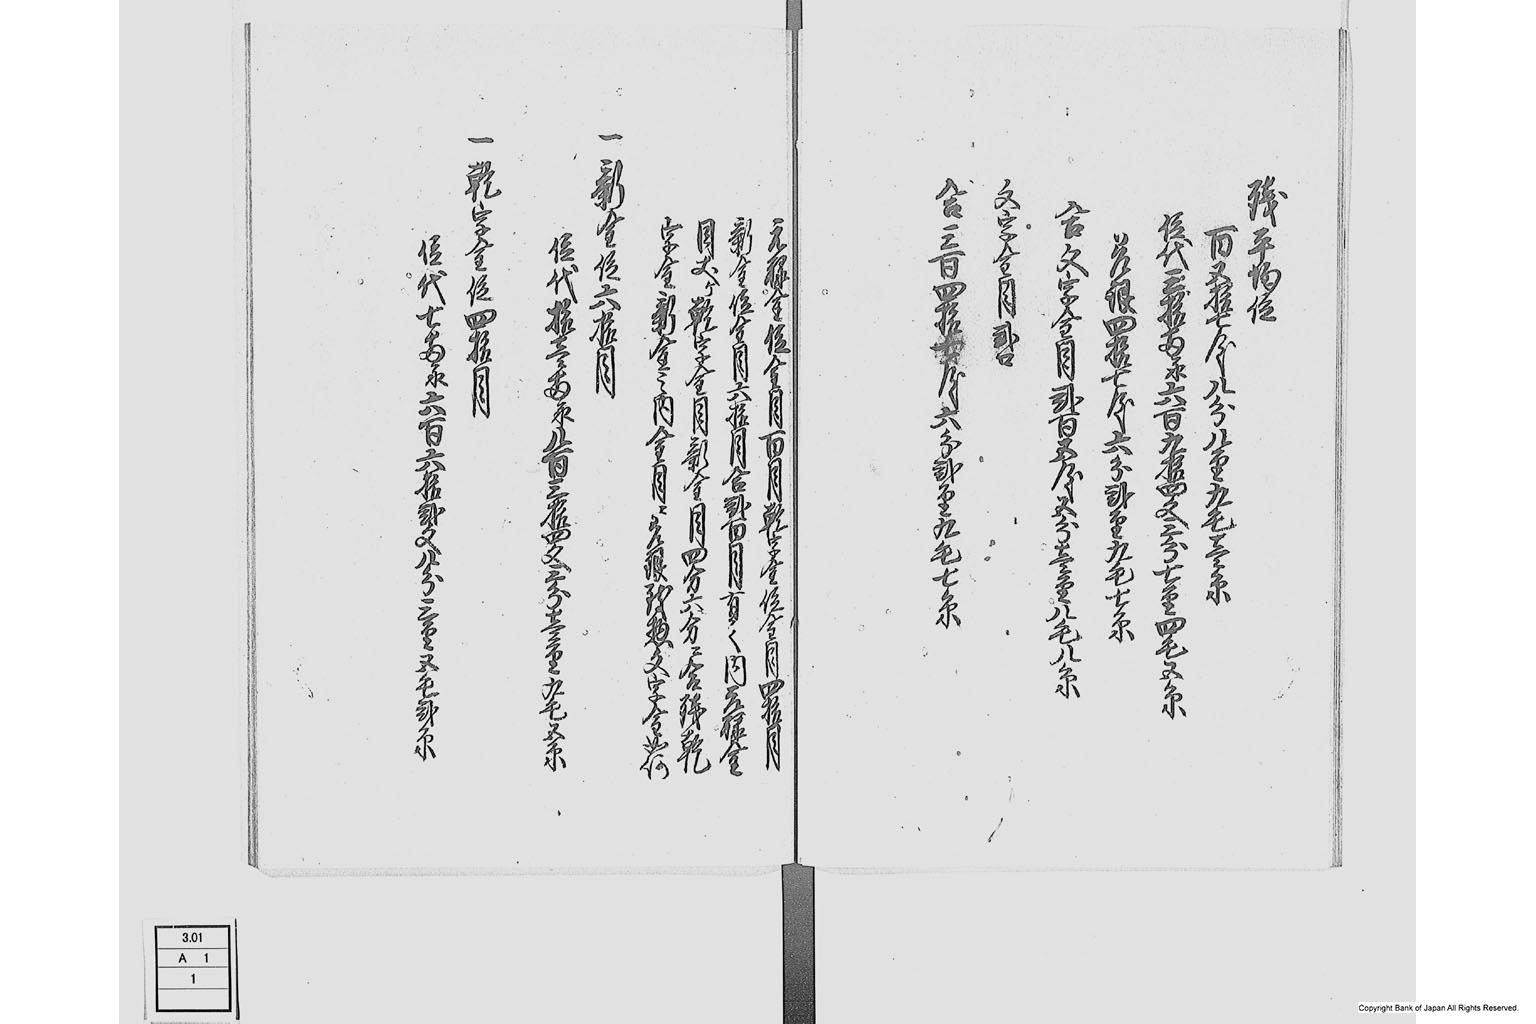 残平均位
百五拾七匁八分八厘九毛三糸
位代三拾両永六百九拾四文三分七厘四毛五糸
花銀四拾七匁六分弐厘九毛七糸
合文字金目弐百五匁五分壱厘八毛八糸
文字金目
合三百四拾匁六分弐厘九毛七糸
元禄金位金目百目乾字金位金目四拾目
新金位金目六拾目合弐百目有之内元禄金
目丈ケ乾字金目新金目四分六分ニ合残乾
字金新金之内金目ニ花銀文字金如何
一新金位六拾目
位代拾三両永八百三拾四文三分壱厘九毛五糸
一乾字金位四拾目
位代七両永六百六拾弐文八分三厘五毛弐糸
3.01
A 1
1
Copyright Bank of Japan All Rights Reserved.